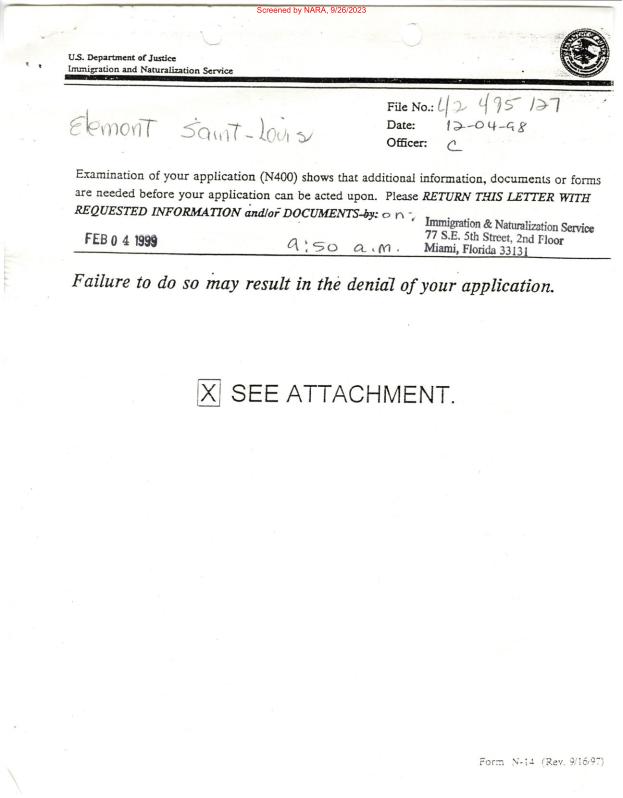 Screened by NARA, 9/26/2023
U.S. Department of Justice
Immigration and Naturalization Service
File No.: 42 495 127
Elemont Saint-Louis
Date: 12-04-98
Officer: C
Examination of your application (N400) shows that additional information, documents or forms
are needed before your application can be acted upon. Please RETURN THIS LETTER WITH
REQUESTED INFORMATION and/or DOCUMENTS by: on
Immigration & Naturalization Service
77 S.E. 5th Street, 2nd Floor
Miami, Florida 33131
FEB 04 1999
9:50 a.m.
Failure to do so may result in the denial of your application.
X SEE ATTACHMENT.
Form N-14 (Rev. 9/16/97)